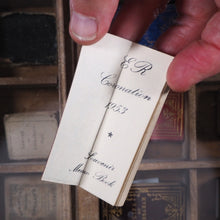 ER
Coronation
1953
Souvenir
Menu Book